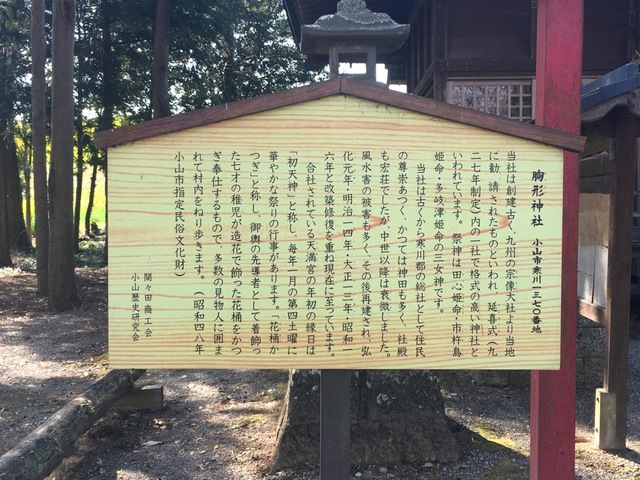 胸形神社　小山市寒川一三七〇番地
当社は創建古く、九州の宗像大社より当地
に勧請されたものといわれ、延喜式（九
二十年制定）内の一社で格式の高い神社と
いわれています。祭神は田心姫命・市杵島
姫命・多岐津姫命の三女神です。
当社は古くから寒川郡の総社として住民
の尊崇あつく、かつては神田も多く、社殿
も宏荘でしたが、中世以降は衰微しました。
風水害の被害も多く、その後再建され、弘
化元年・明治一四年・大正一三年・昭和一
六年と改築修復を重ね現在に至っています。
合社されている天満宮の年初の縁日は
「初天神」と称し、毎年一月の第四土曜に
華やかな祭りの行事があります。「花桶か
つぎ」と称し、御輿の先導者として着飾っ
た七才の稚児が造花で飾った花桶をかつ
ぎ奉仕するもので、多数の見物人に囲ま
れて村内をねり歩きます。（昭和四八年
小山市指定民俗文化財）
間々田商工会
小山歴史研究会